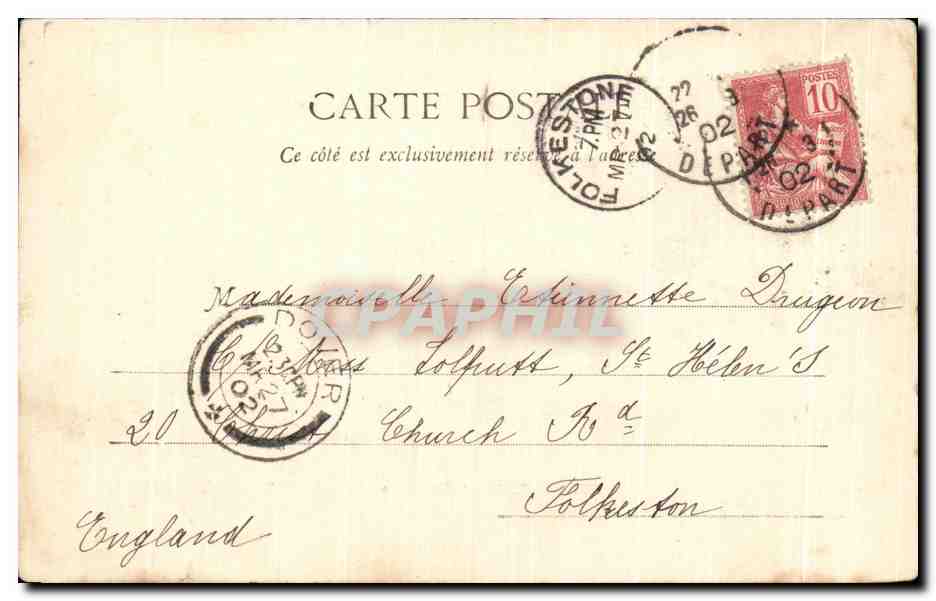 CARTE POST
Ce côté est exclusivement réservé à l'adresse
FOLKESTONE
7 PM
MR 27
02
22
26 3
02
DEPART
POSTES
10
3
02
DEPART
Mademoiselle Etiennette Drugeon
DOVER
MR 27
02
Miss Tolputt, St Hélen's
20 Church Rd
Folkeston
England
CPAPHIL